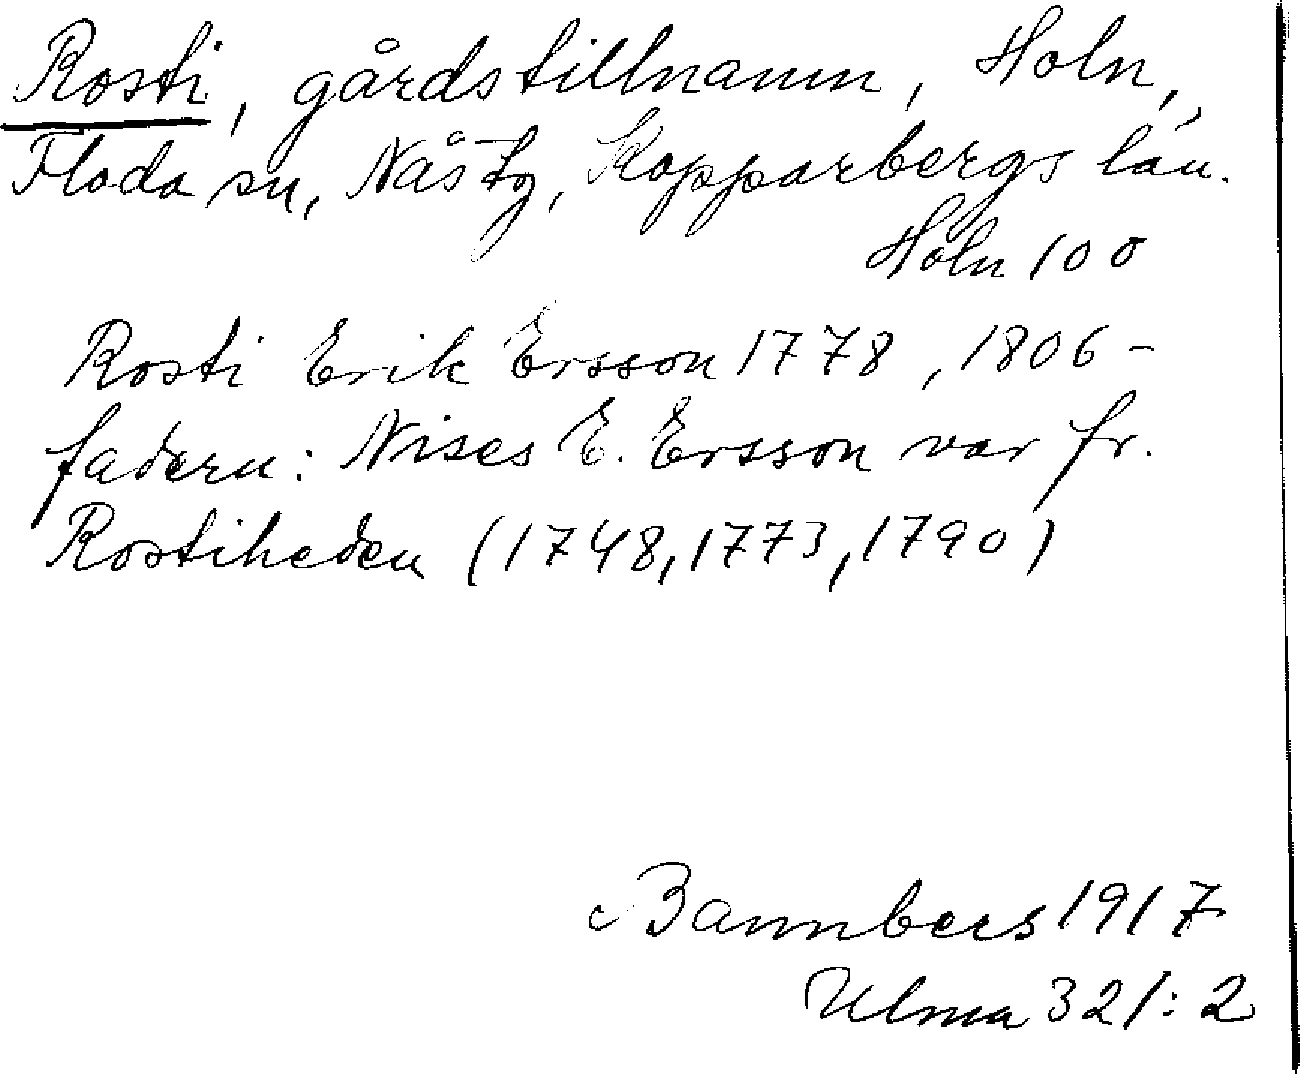 Rosti, gårdstillnamn, Holn,
Floda sn, Nås tg, Kopparbergs län.
Holn 100
Rosti Erik Ersson 1778, 1806 -
fadern: Nises E. Ersson var fr.
Rostiheden (1748, 1773, 1790)
Bannbers 1917
Ulma 321:2